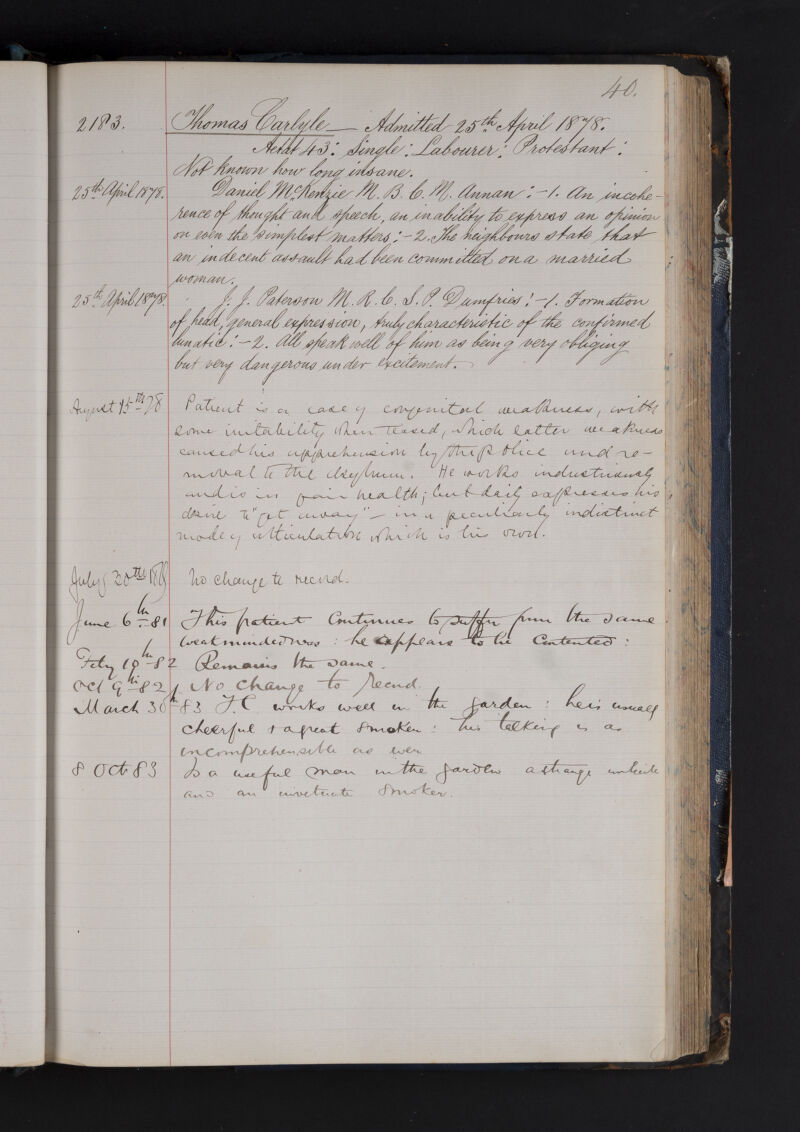 40.
2183. Thomas Carlyle — Admitted 25th April 1878.
Aetat 43: Single: Labourer: Protestant:
Not known how long insane.
25th April 1878. Daniel McKenzie M. B. C. M. Annan:-1. An incohe-
rence of thought and speech, an inability to express an opinion
on even the simplest matters:-2. The neighbours state that
an indecent assault had been committed on a married
woman.
25th April 1878. J. J. Paterson M. R. C. S. P. Dumfries:-1. Formation
of head, general expression, truly characteristic of the confirmed
lunatic:-2. All speak well of him as being very obliging
but very dangerous under excitement.
August 15th 78 Patient is a case of congenital weakness, with
some irritability when teased, which latter weakness
caused his apprehension by the Police and re-
moval to the Asylum. He works industriously
and is in fair health; but daily expresses his
desire to "get away" – in a peculiarly indistinct
mode of articulation which is his own.
July 30th 1879 No change to record.
June 6th 81 This patient Continues to suffer from the same
weakmindedness: he appears to be Contented:
Feby 19th 82 Remains the same.
Oct 9th 82 No change to record.
March 30th 83 T.C works well in the garden: he is usually
cheerful & a great smoker: his talking is as
incomprehensible as ever
8 Oct 83 Is a useful man in the garden a
and an inveterate smoker.